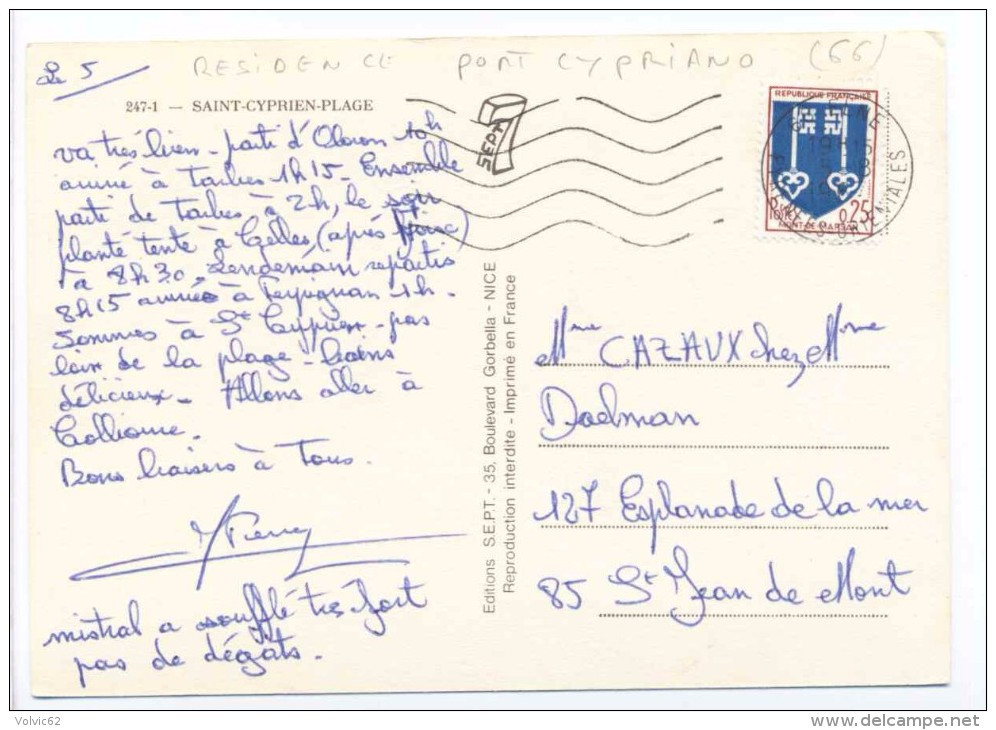 RESIDENCE PORT CYPRIANO (66)
Le 5
247-1 — SAINT-CYPRIEN-PLAGE
va très bien - parti d'Oloron 10h
arrivé à Tarbes 1h15 - Ensemble
parti de Tarbes à 2h, le soir
planté tente à Celles, (après Foix)
à 8h30 - Lendemain repartis
8h15 arrivée à Perpignan 1h -
Sommes à St Cyprien - pas
loin de la plage - bains
délicieux - Allons aller à
Collioure.
Bons baisers à Tous.
Pierre
mistral a soufflé très fort
pas de dégats.
Editions S.E.P.T. - 35, Boulevard Gorbella - NICE
Reproduction interdite - Imprimé en France
SEPT
7
REPUBLIQUE FRANÇAISE
0,25
MONT-DE-MARSAN
ELNE
Mme CAZAUX chez Mme
Daelman
127 Esplanade de la mer
85 St Jean de Mont
Volvic62